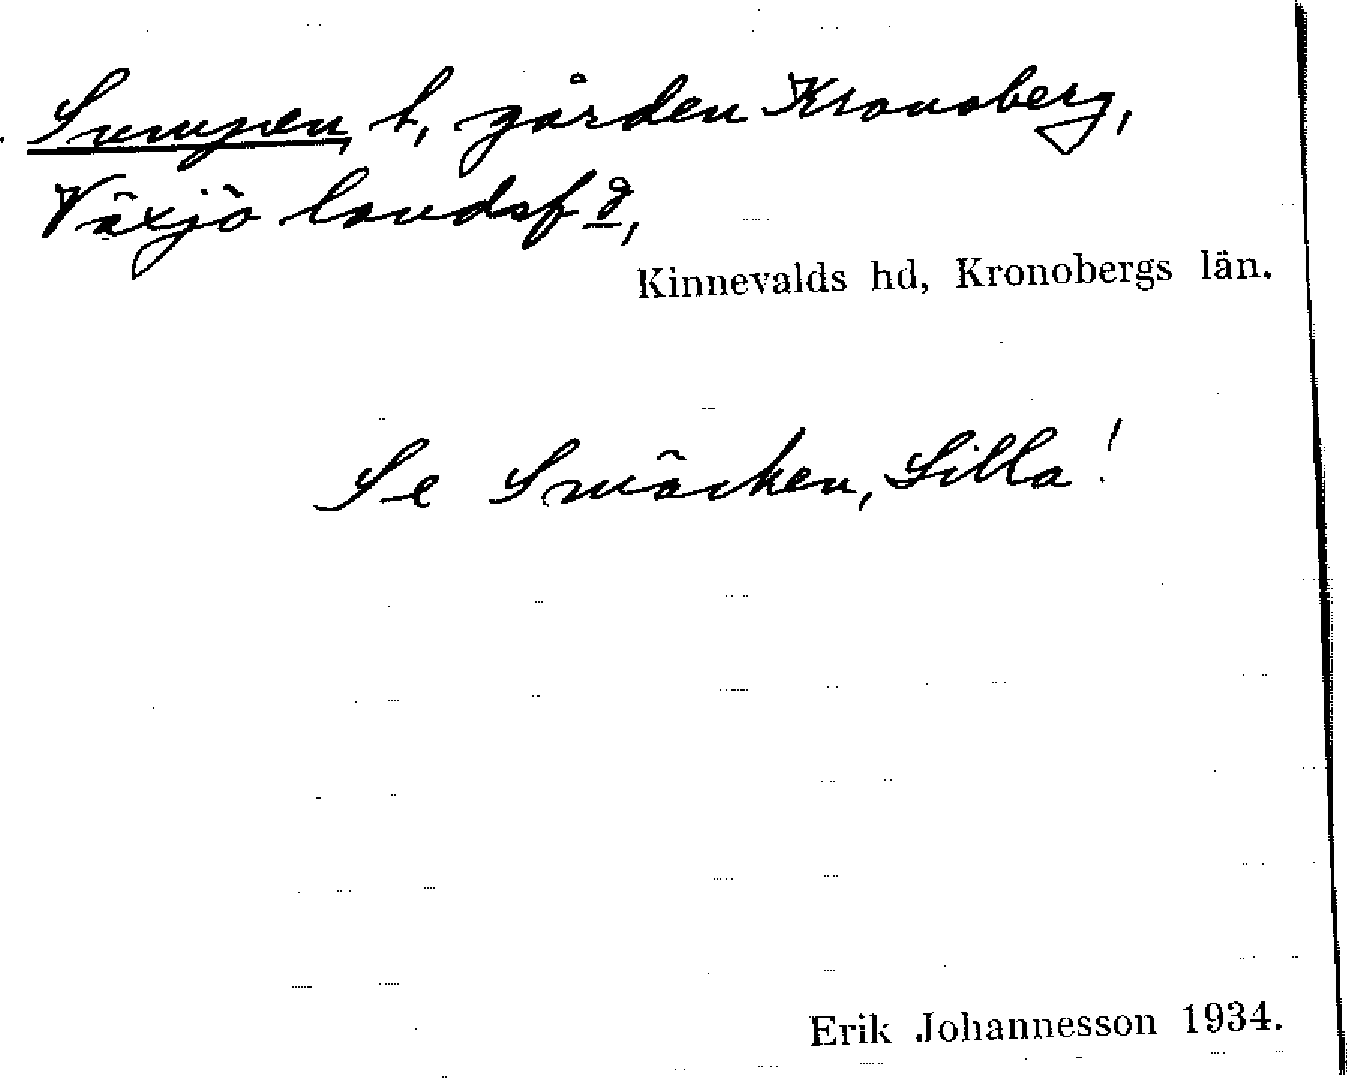 Sumpen, t, gården Kronoberg,
Växjö landsfd,
Kinnevalds hd, Kronobergs län.
Se Smäcken, Lilla!
Erik Johannesson 1934.